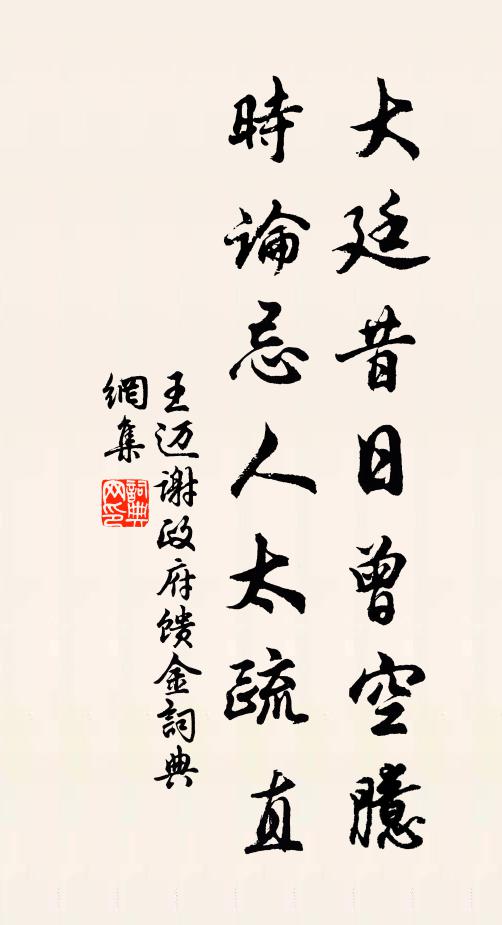 大廷昔日曾空臆
時論忌人太疏直
王迈謝政府馈金詞典
網集
詞典网印